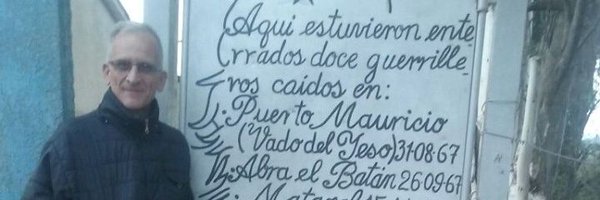 Aqui estuvieron ente
rrados doce guerrille
ros caidos en:
I: Puerto Mauricio
(Vado del Yeso) 31-08-67
II: Abra el Batán 26-09-67